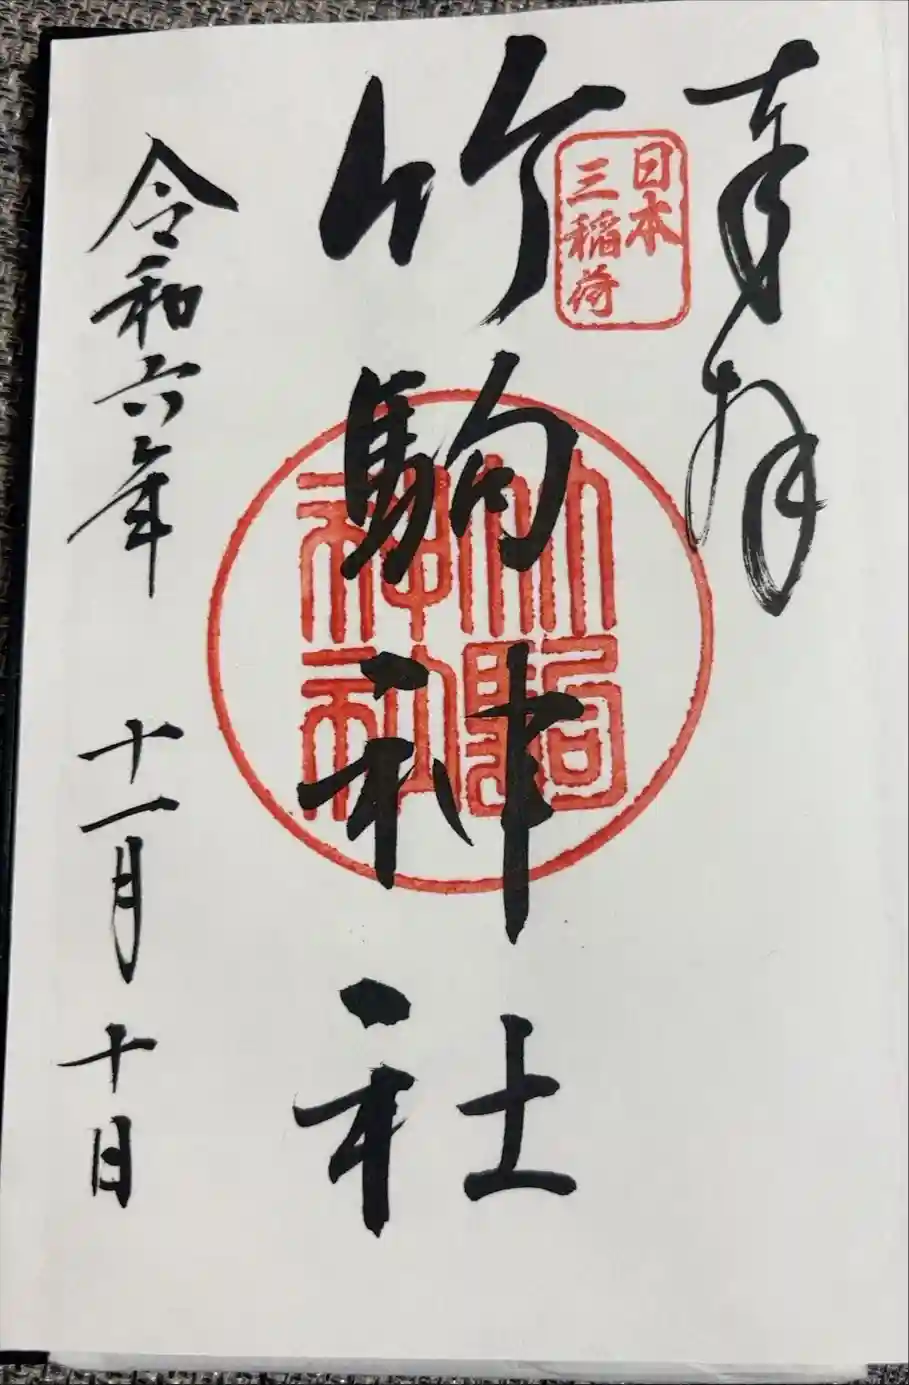 奉拝
日本
三稲荷
竹駒神社
竹駒
神社
令和六年十一月十日